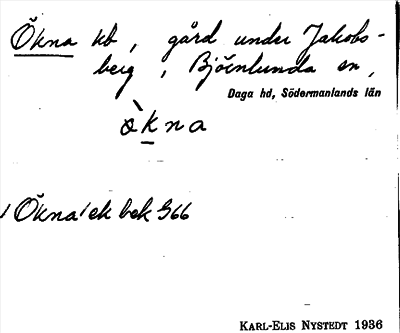 Ökna kb, gård under Jakobs-
berg, Björnlunda sn,
Daga hd, Södermanlands län
ò̀kna
Ökna ek bek 566
KARL-ELIS NYSTEDT 1936